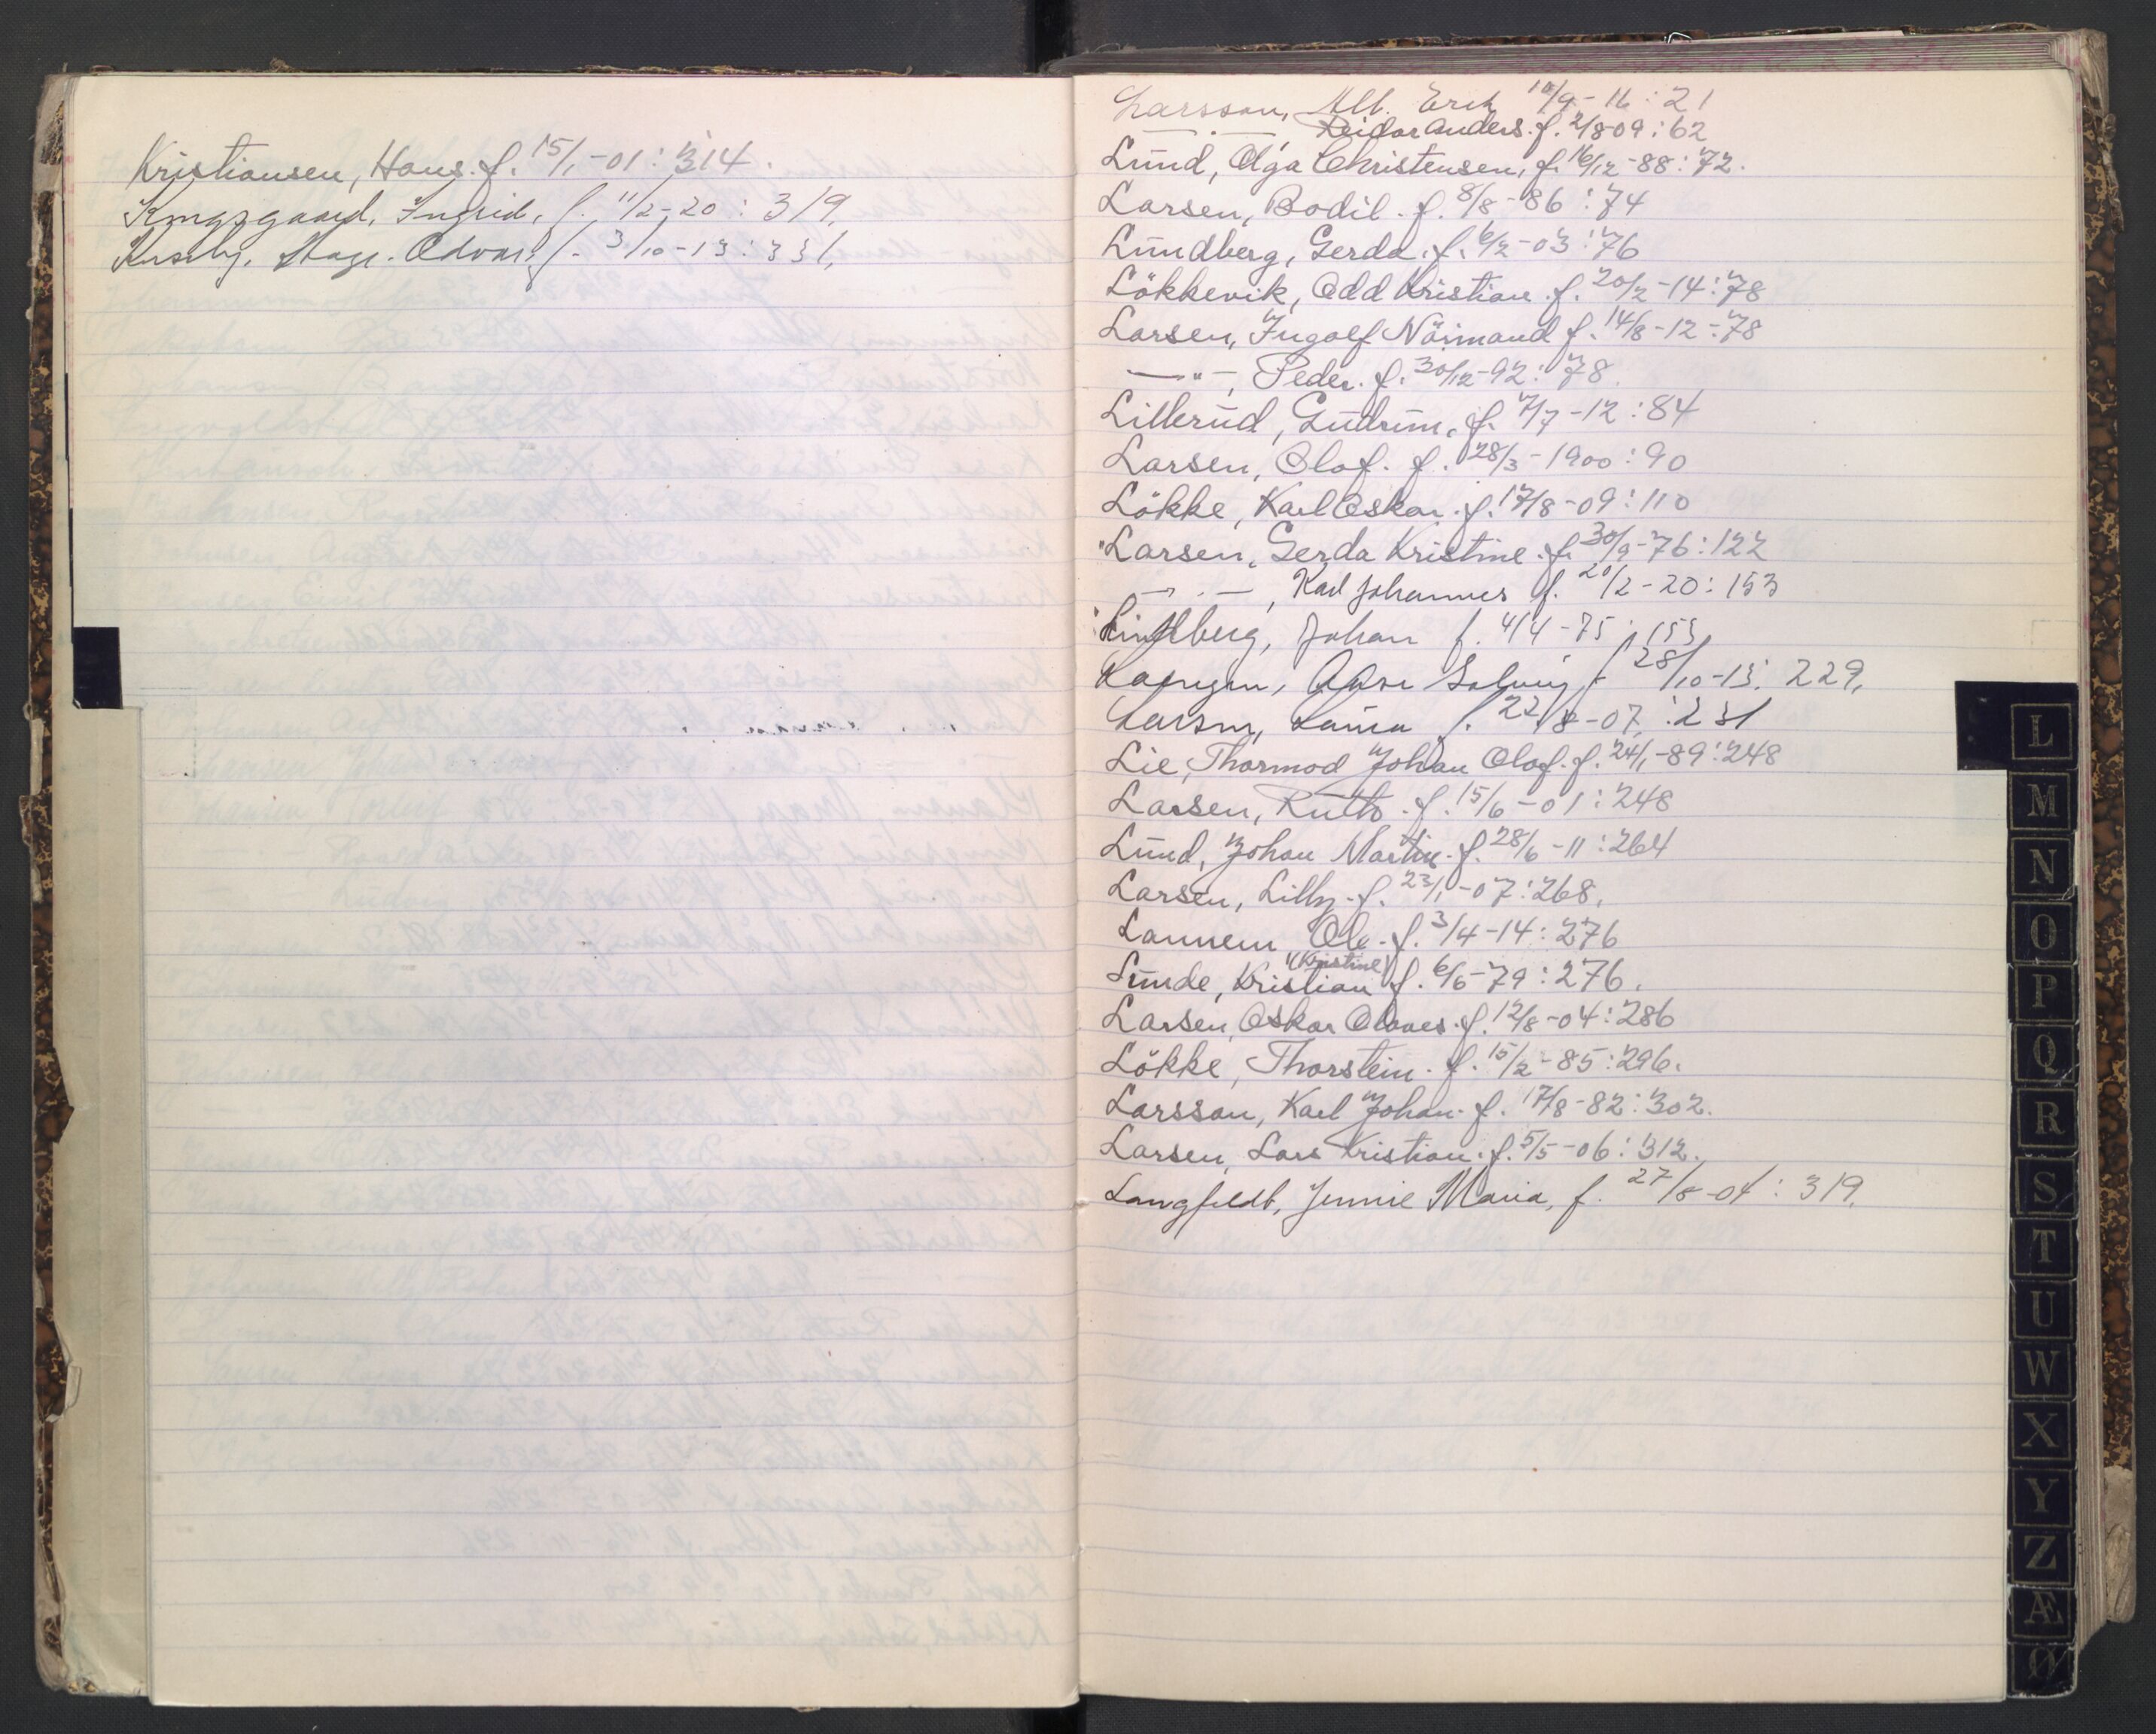 Kristiansen, Hans. f. 15/1-01: 314.
Ingrid, f. 11/2-20: 319.
Odvar f. 3/10-13: 331.
Larsson, Alb. Erik 10/9-16: 21
— " — Reidar Anders. f. 2/8 09: 62
Lund, Olga Christensen, f. 16/12-88: 72.
Larsen, Bodil. f. 8/8-86: 74
Lundberg, Gerda. f. 6/2-03: 76
Lökkevik, Odd Kristian. f. 20/2-14: 78
Larsen, Ingolf Normand f. 14/8-12: 78
— " —, Peder. f. 30/12-92: 78.
Lillerud, Gudrun, f. 7/7-12: 84
Larsen, Olaf. f. 28/3-1900: 90
Lökke, Karl Oskar. f. 17/8-09: 110
Larsen, Gerda Kristine. f. 30/9-76: 122
— " —, Karl Johannes f. 20/2-20: 153
Johan f. 4/4-75: 153
Solveig f 28/10-13: 229.
Larsen, f. 22/8-07: 231
Lie, Thormod Johan Olaf. f. 24/1-89: 248
Larsen, Ruth. f. 15/6-01: 248
Lund, Johan Martin. f. 28/6-11: 264
Larsen, Lilly. f. 23/1-07: 268.
Lannem, Ole. f. 3/4-14: 276
(Kristine)
Sunde, Kristian f. 6/6-79: 276.
Larsen, Oskar Olaves. f. 12/8-04: 286
Lökke, Thorstein. f. 15/2-85: 296.
Larsson, Karl Johan. f. 17/8-82: 302.
Larsen, Lars Kristian. f. 5/5-06: 312.
Langfeldt, Jennie Maria, f. 27/8-04: 319.
L
M
N
O
P
Q
R
S
T
U
W
X
Y
Z
Æ
Ø